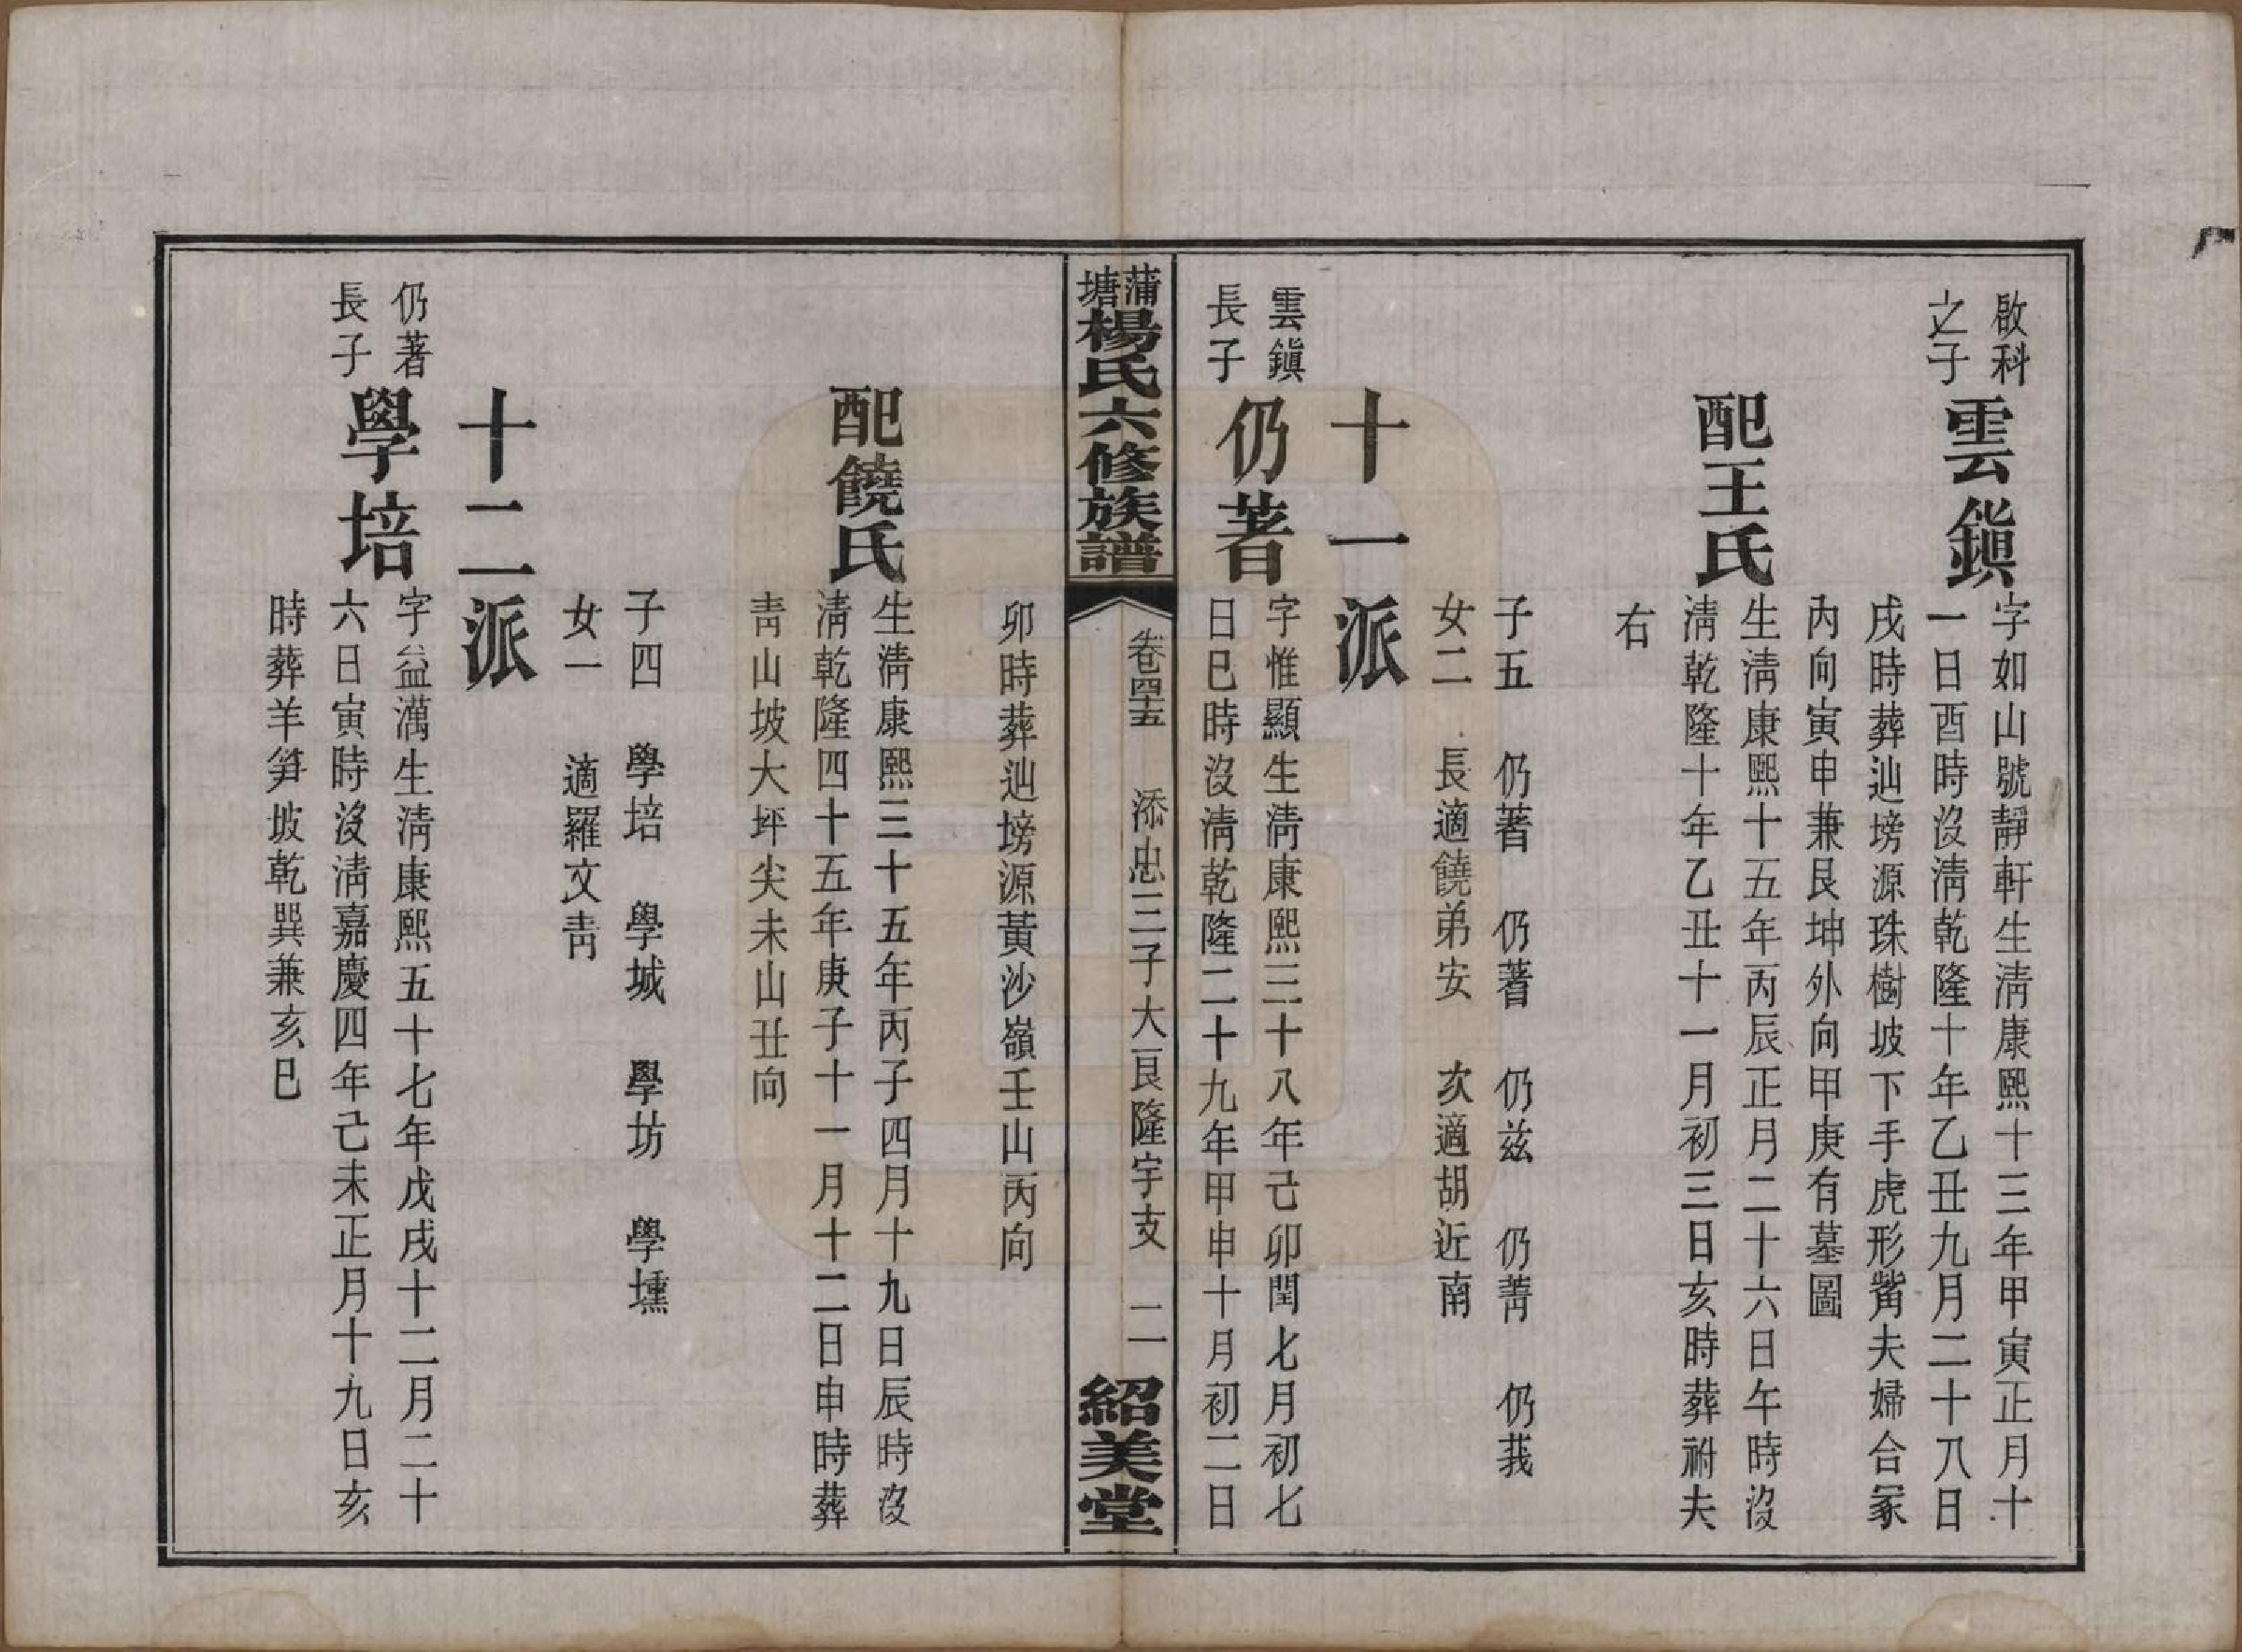 啟科
之子
雲鎮
字如山號靜軒生清康熙十三年甲寅正月十
一日酉時沒清乾隆十年乙丑九月二十八日
戌時葬辿塝源珠樹坡下手虎形觜夫婦合冢
丙向寅申兼艮坤外向甲庚有墓圖
配王氏
生清康熙十五年丙辰正月二十六日午時沒
清乾隆十年乙丑十一月初三日亥時葬祔夫
右
子五 仍著 仍蓍 仍兹 仍菁 仍莪
女二 長適饒弟安 次適胡近南
十一派
雲鎮
長子
仍著
字惟顯生清康熙三十八年己卯閏七月初七
日巳時沒清乾隆二十九年甲申十月初二日
蒲塘楊氏六修族譜
卷四十五 添忠三子大艮隆宇支 二
紹美堂
卯時葬辿塝源黃沙嶺壬山丙向
配饒氏
生清康熙三十五年丙子四月十九日辰時沒
清乾隆四十五年庚子十一月十二日申時葬
青山坡大坪尖未山丑向
子四 學培 學城 學坊 學壎
女一 適羅文青
十二派
仍著
長子
學培
字益澫生清康熙五十七年戊戌十二月二十
六日寅時沒清嘉慶四年己未正月十九日亥
時葬羊筭坡乾巽兼亥巳